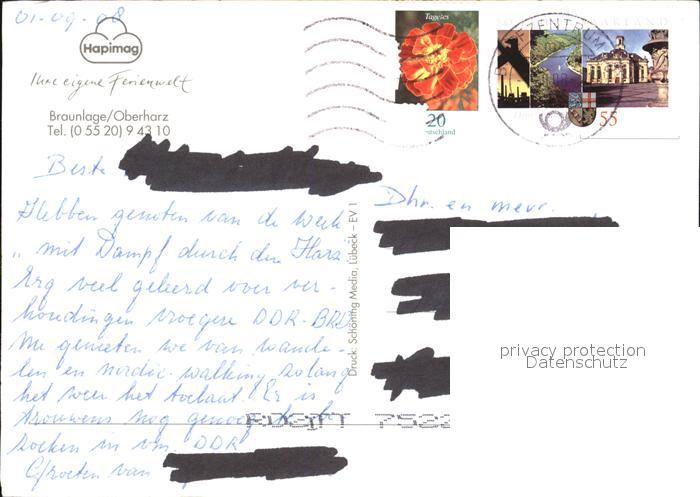 01-09-08
Hapimag
Ihre eigene Ferienwelt
Braunlage/Oberharz
Tel. (0 55 20) 9 43 10
Tagetes
20
55
Beste
Dhr. en mevr.
Hebben genoten van de week
„ mit Dampf durch den Harz
Erg veel geleerd over ver-
houdingen vroegere DDR-BRD
Nu genieten we van wande-
len en nordic-walking zolang
het weer het toelaat. Er is
trouwens nog genoeg te be
zoeken in vm. DDR
Groeten van
Druck: Schöning Media, Lübeck – EV 1
privacy protection
Datenschutz